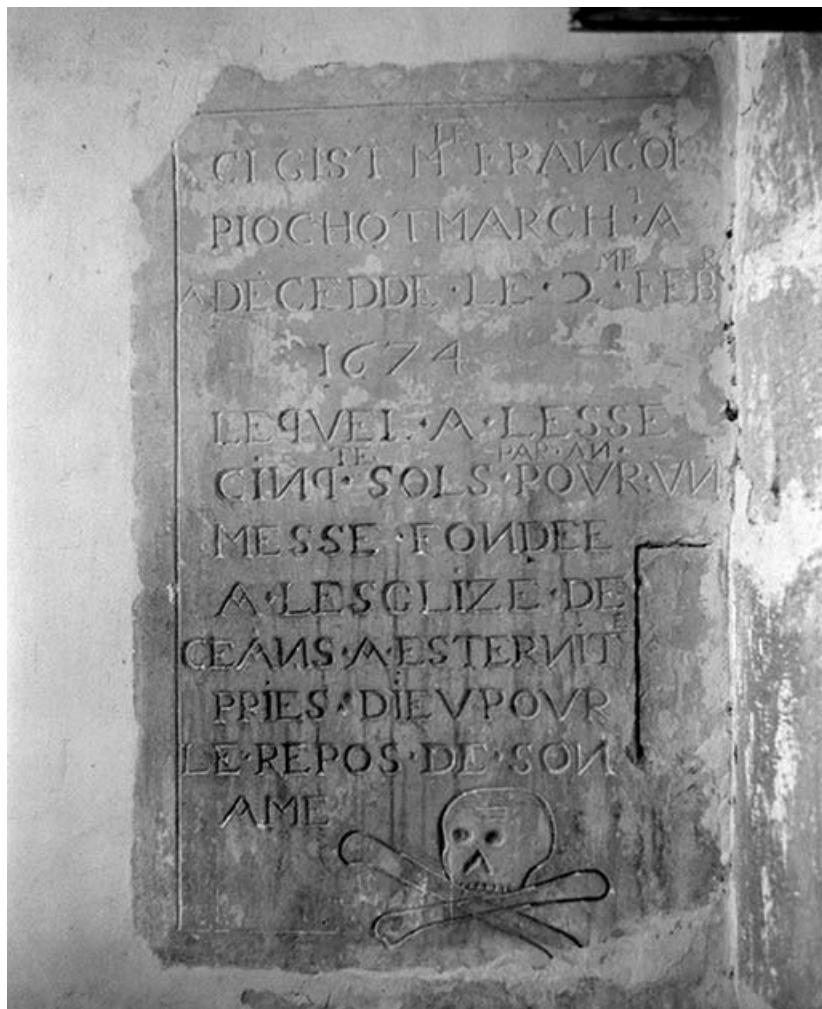 CI GIST Mᴿᴱ FRANCOI
PIOCHOT MARCHᵀ · A
A DECEDDE · LE · 2ᴹᴱ · FEBᴿ
1674
LEQVEL · A · LESSE
TE PAR · AN ·
CINQ · SOLS · POVR · VN
MESSE · FONDEE
A · LESGLIZE · DE
CEANS · A · ESTERNITᴱ
PRIES · DIEV POVR
LE · REPOS · DE · SON
AME